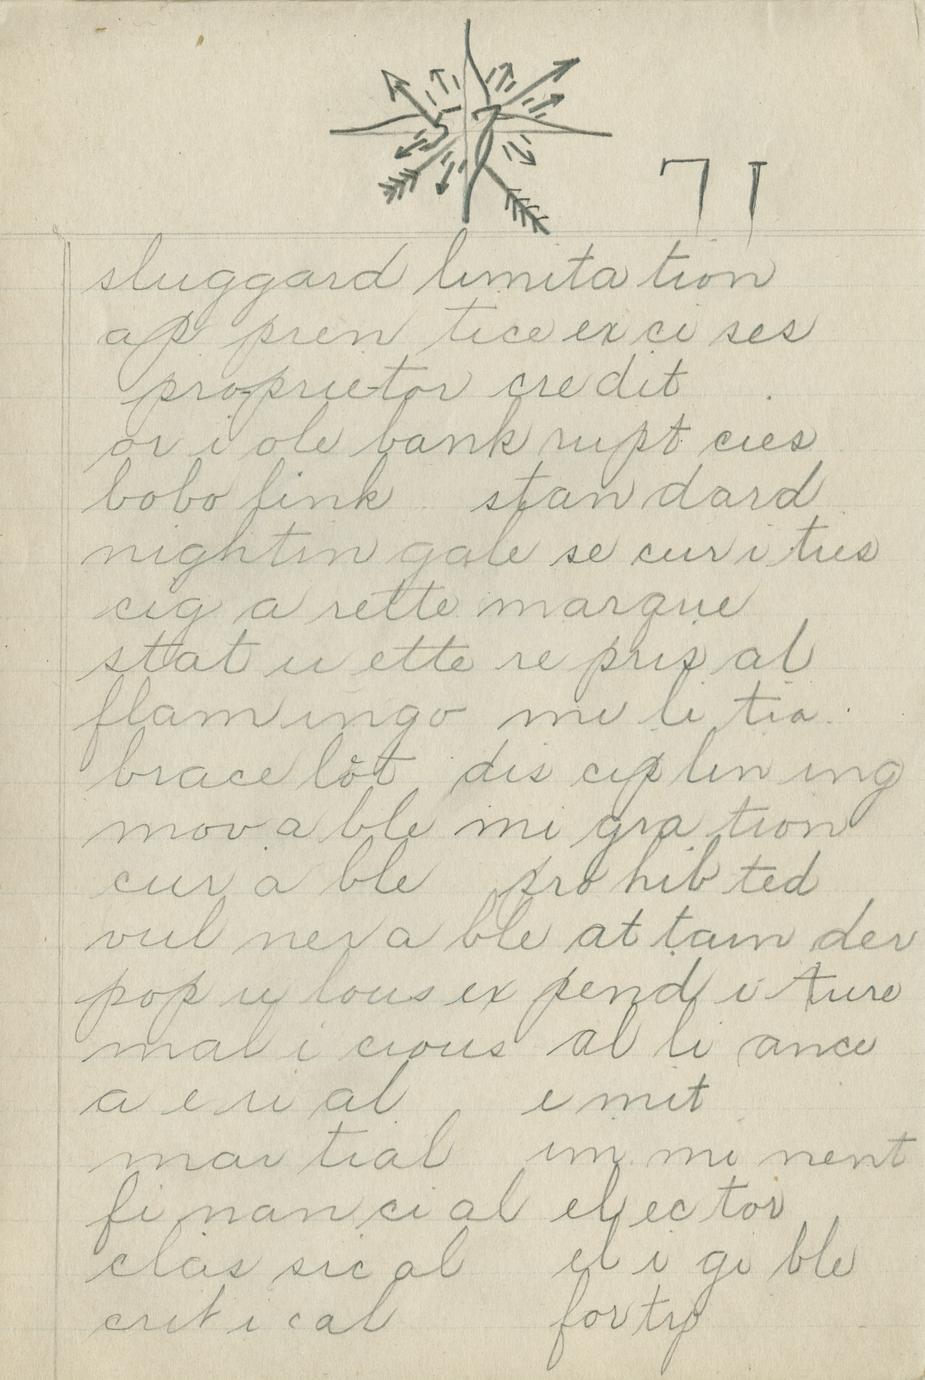 71
sluggard limita tion
ap pren tice ex ci ses
pro-prie-tor cre dit
or i ole bank rupt cies
bobo link stan dard
nightin gale se cur i ties
cig a rette marque
stat u ette re pris al
flam ingo mi li tia
brace lot dis cip lin ing
mov a ble mi gra tion
cur a ble pro hib ted
vul ner a ble at tain der
pop u lous ex pend i ture
mal i cious al li ance
a e ri al e mit
mar tial im mi nent
fi nan ci al el ec tor
clas sic al el i gi ble
crit i cal forty